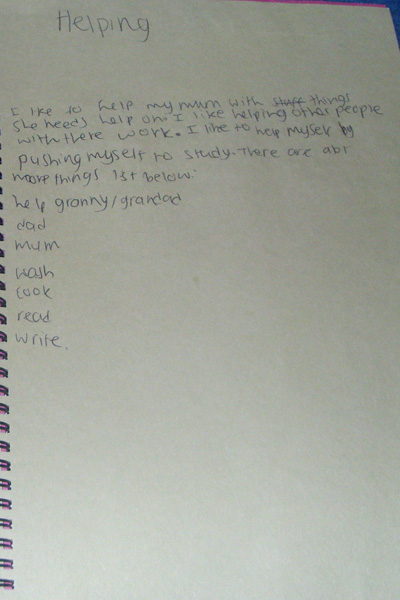 Helping
I like to help my mum with stuff things
she needs help on. I like helping other people
with there work. I like to help myself by
pushing myself to study. There are abt
more things list below:
help granny/grandad
dad
mum
wash
cook
read
write.